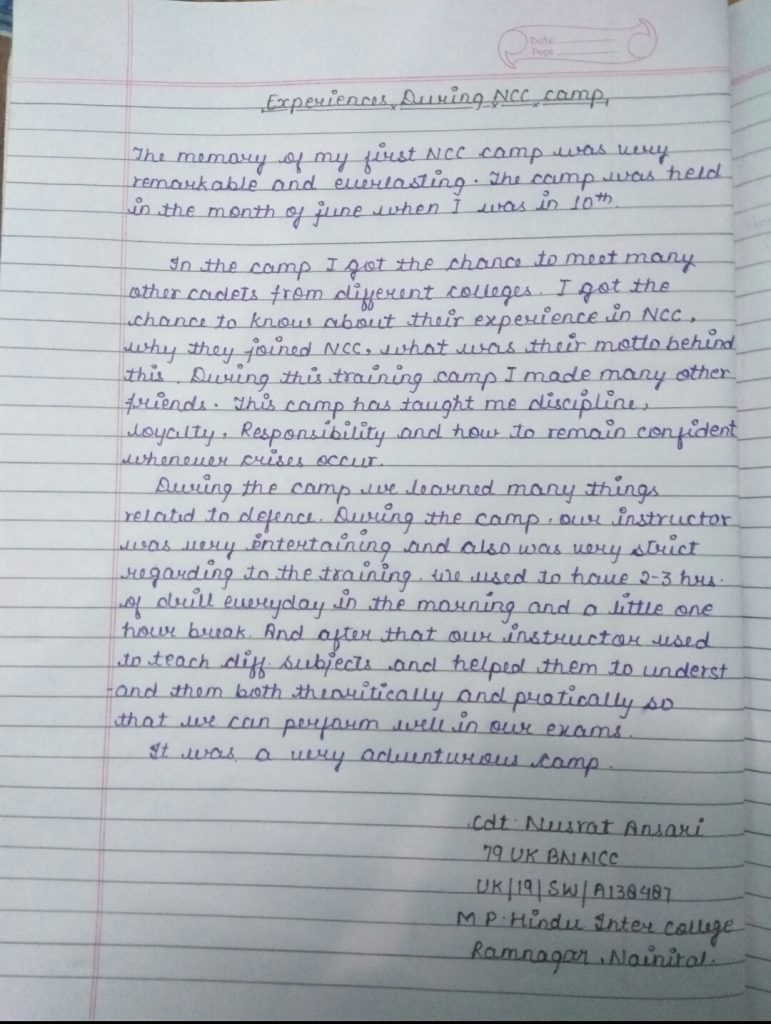 Date
Page
Experiences During NCC camp
The memory of my first NCC camp was very
remarkable and everlasting. The camp was held
in the month of june when I was in 10th.
In the camp I got the chance to meet many
other cadets from different colleges. I got the
chance to know about their experience in NCC,
why they joined NCC, what was their motto behind
this. During this training camp I made many other
friends. This camp has taught me discipline,
loyalty, Responsibility and how to remain confident
whenever crises occur.
During the camp we learned many things
related to defence. During the camp, our instructor
was very entertaining and also was very strict
regarding to the training. We used to have 2-3 hrs.
of drill everyday in the morning and a little one
hour break. And after that our instructor used
to teach diff. subjects and helped them to underst
-and them both thearitically and pratically so
that we can perform well in our exams.
It was a very adventurous camp.
Cdt. Nusrat Ansari
79 UK BN NCC
UK/19/SW/A138487
M.P. Hindu Inter College
Ramnagar, Nainital.